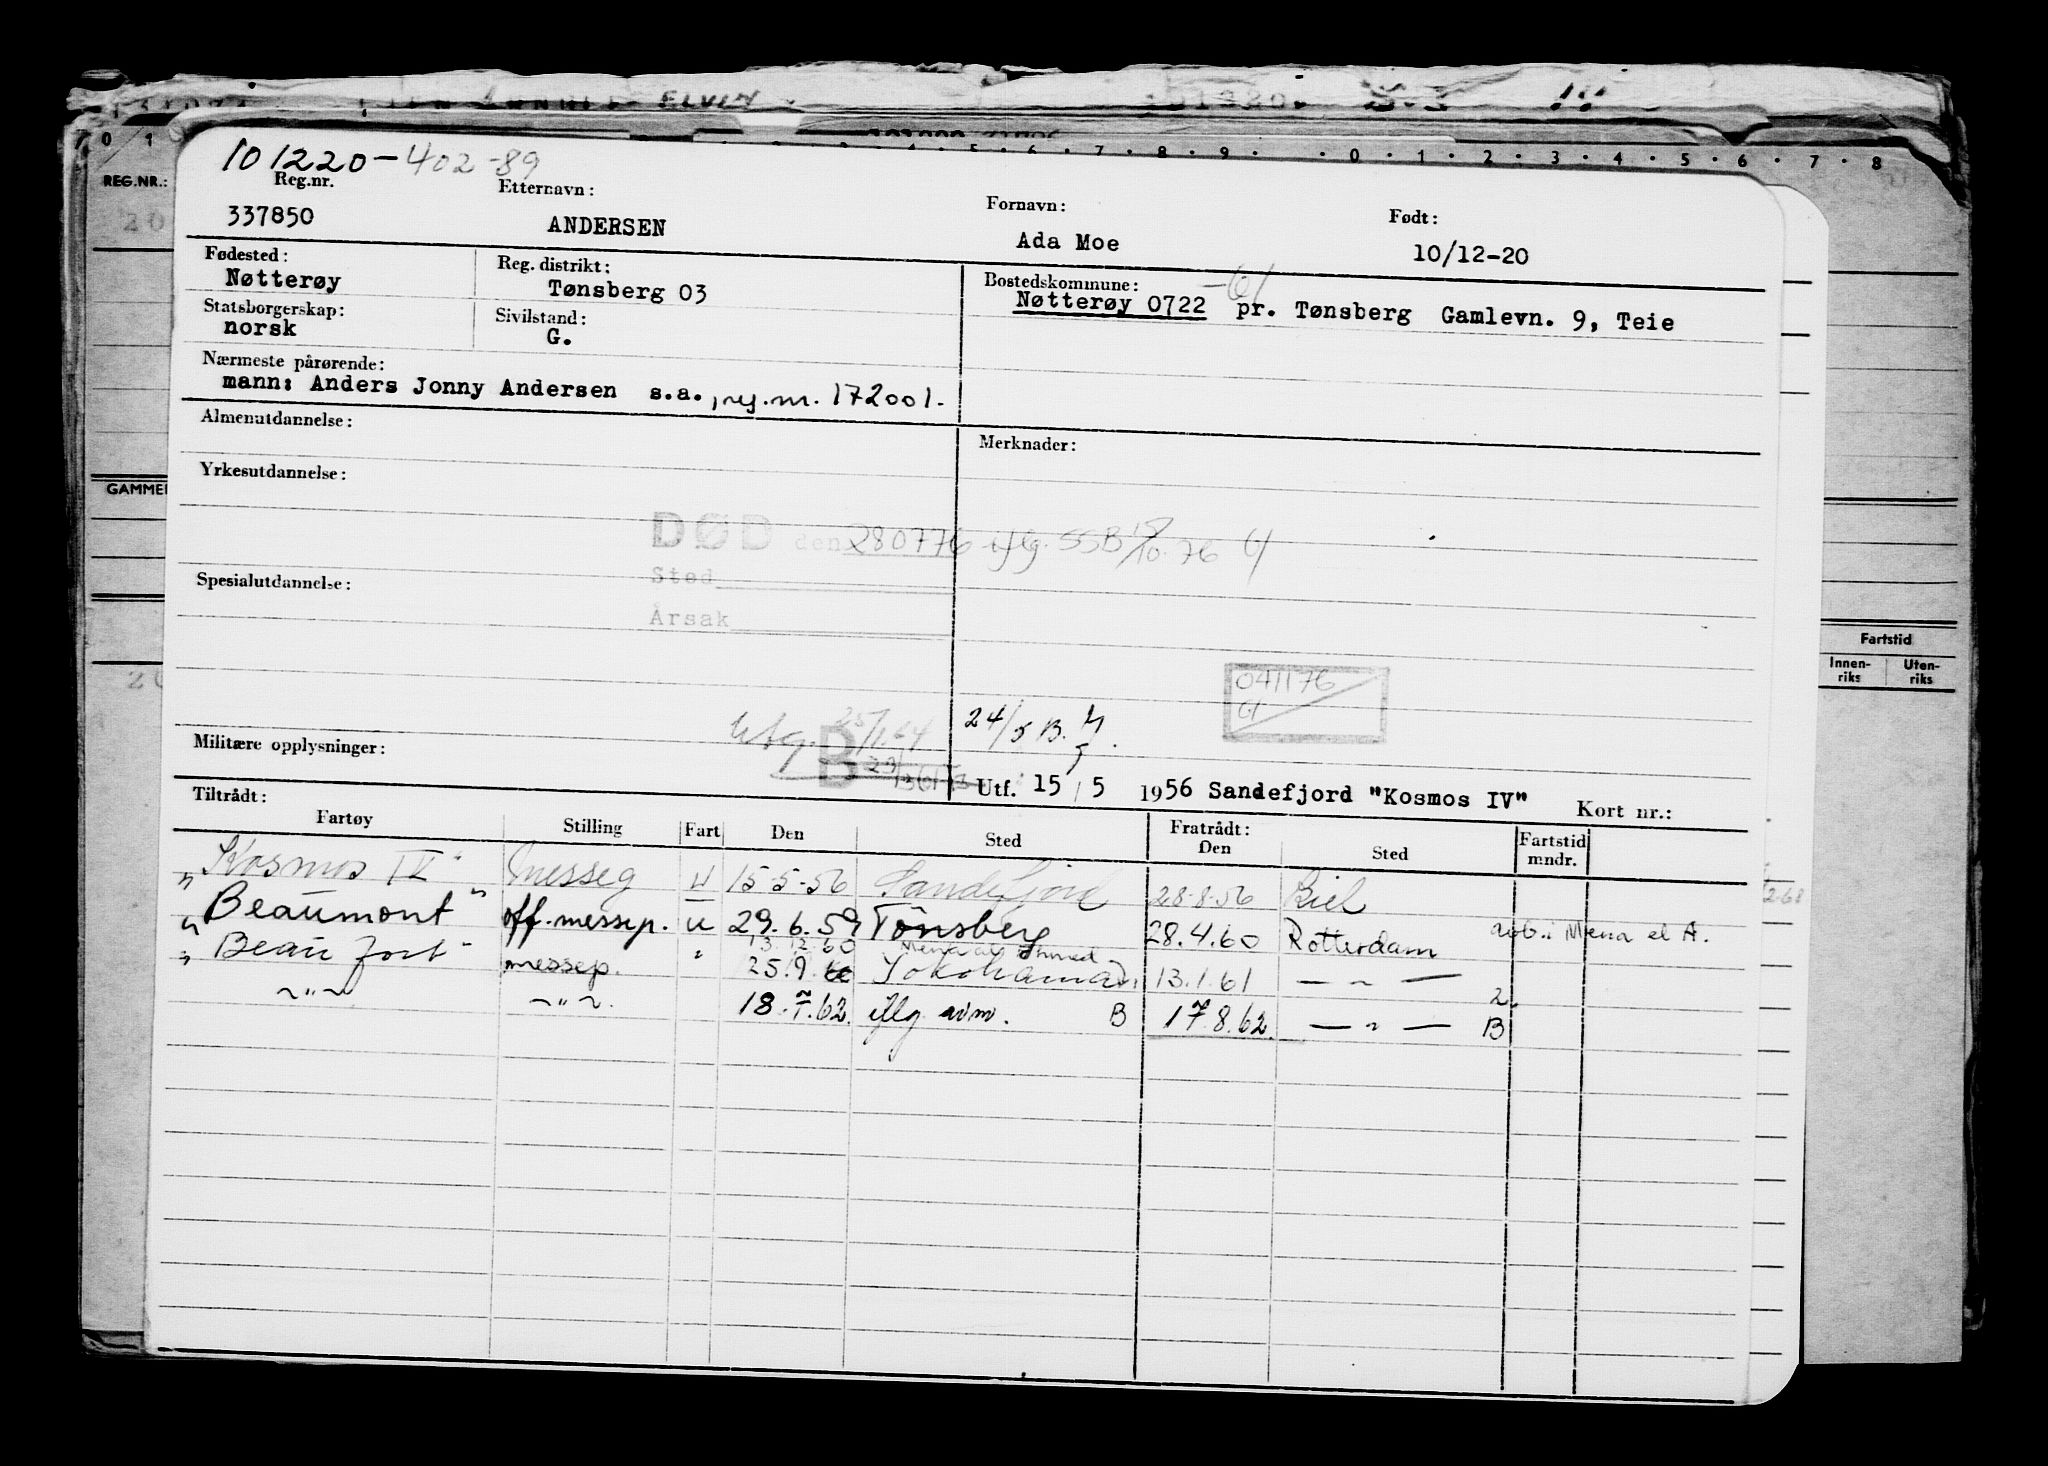 ELVIN
0 1 2 3 4 5 6 7 8 9 0 1 2 3 4 5 6 7 8
REG.NR.:
101220-402-89
Reg.nr. Etternavn: Fornavn: Født:
337850 ANDERSEN Ada Moe 10/12-20
Fødested: Reg. distrikt: Bostedskommune:
Nøtterøy Tønsberg 03 Nøtterøy 0722 pr. Tønsberg Gamlevn. 9, Teie
Statsborgerskap: Sivilstand:
norsk G.
Nærmeste pårørende:
mann: Anders Jonny Andersen s.a., reg.nr. 172001.
Almenutdannelse: Merknader:
Yrkesutdannelse:
GAMMEL
DØD den 280776 iflg. SSB 15/10.76
Sted
Spesialutdannelse:
Årsak
Fartstid
Innen-riks Uten-riks
041176
24/5 B.
Militære opplysninger:
B
Utf. 15/5 1956 Sandefjord "Kosmos IV" Kort nr.:
Tiltrådt: Fratrådt:
Fartøy Stilling Fart Den Sted Den Sted Fartstid mndr.
"Kosmos IV" Messeg U 15-5-56 Sandefjord 28-8-56 Kiel
"Beaumont" off.messep. u 29.6.59 Tønsberg 28.4.60 Rotterdam
13.12.60 Mena al Ahmed avb.: Mena el A.
"Beau fort" messep. " 25.9. Yokohama 13.1.61 — " —
~ " ~ ~ " ~. 18.1.62. iflg avm. B 17.8.62. — " — B